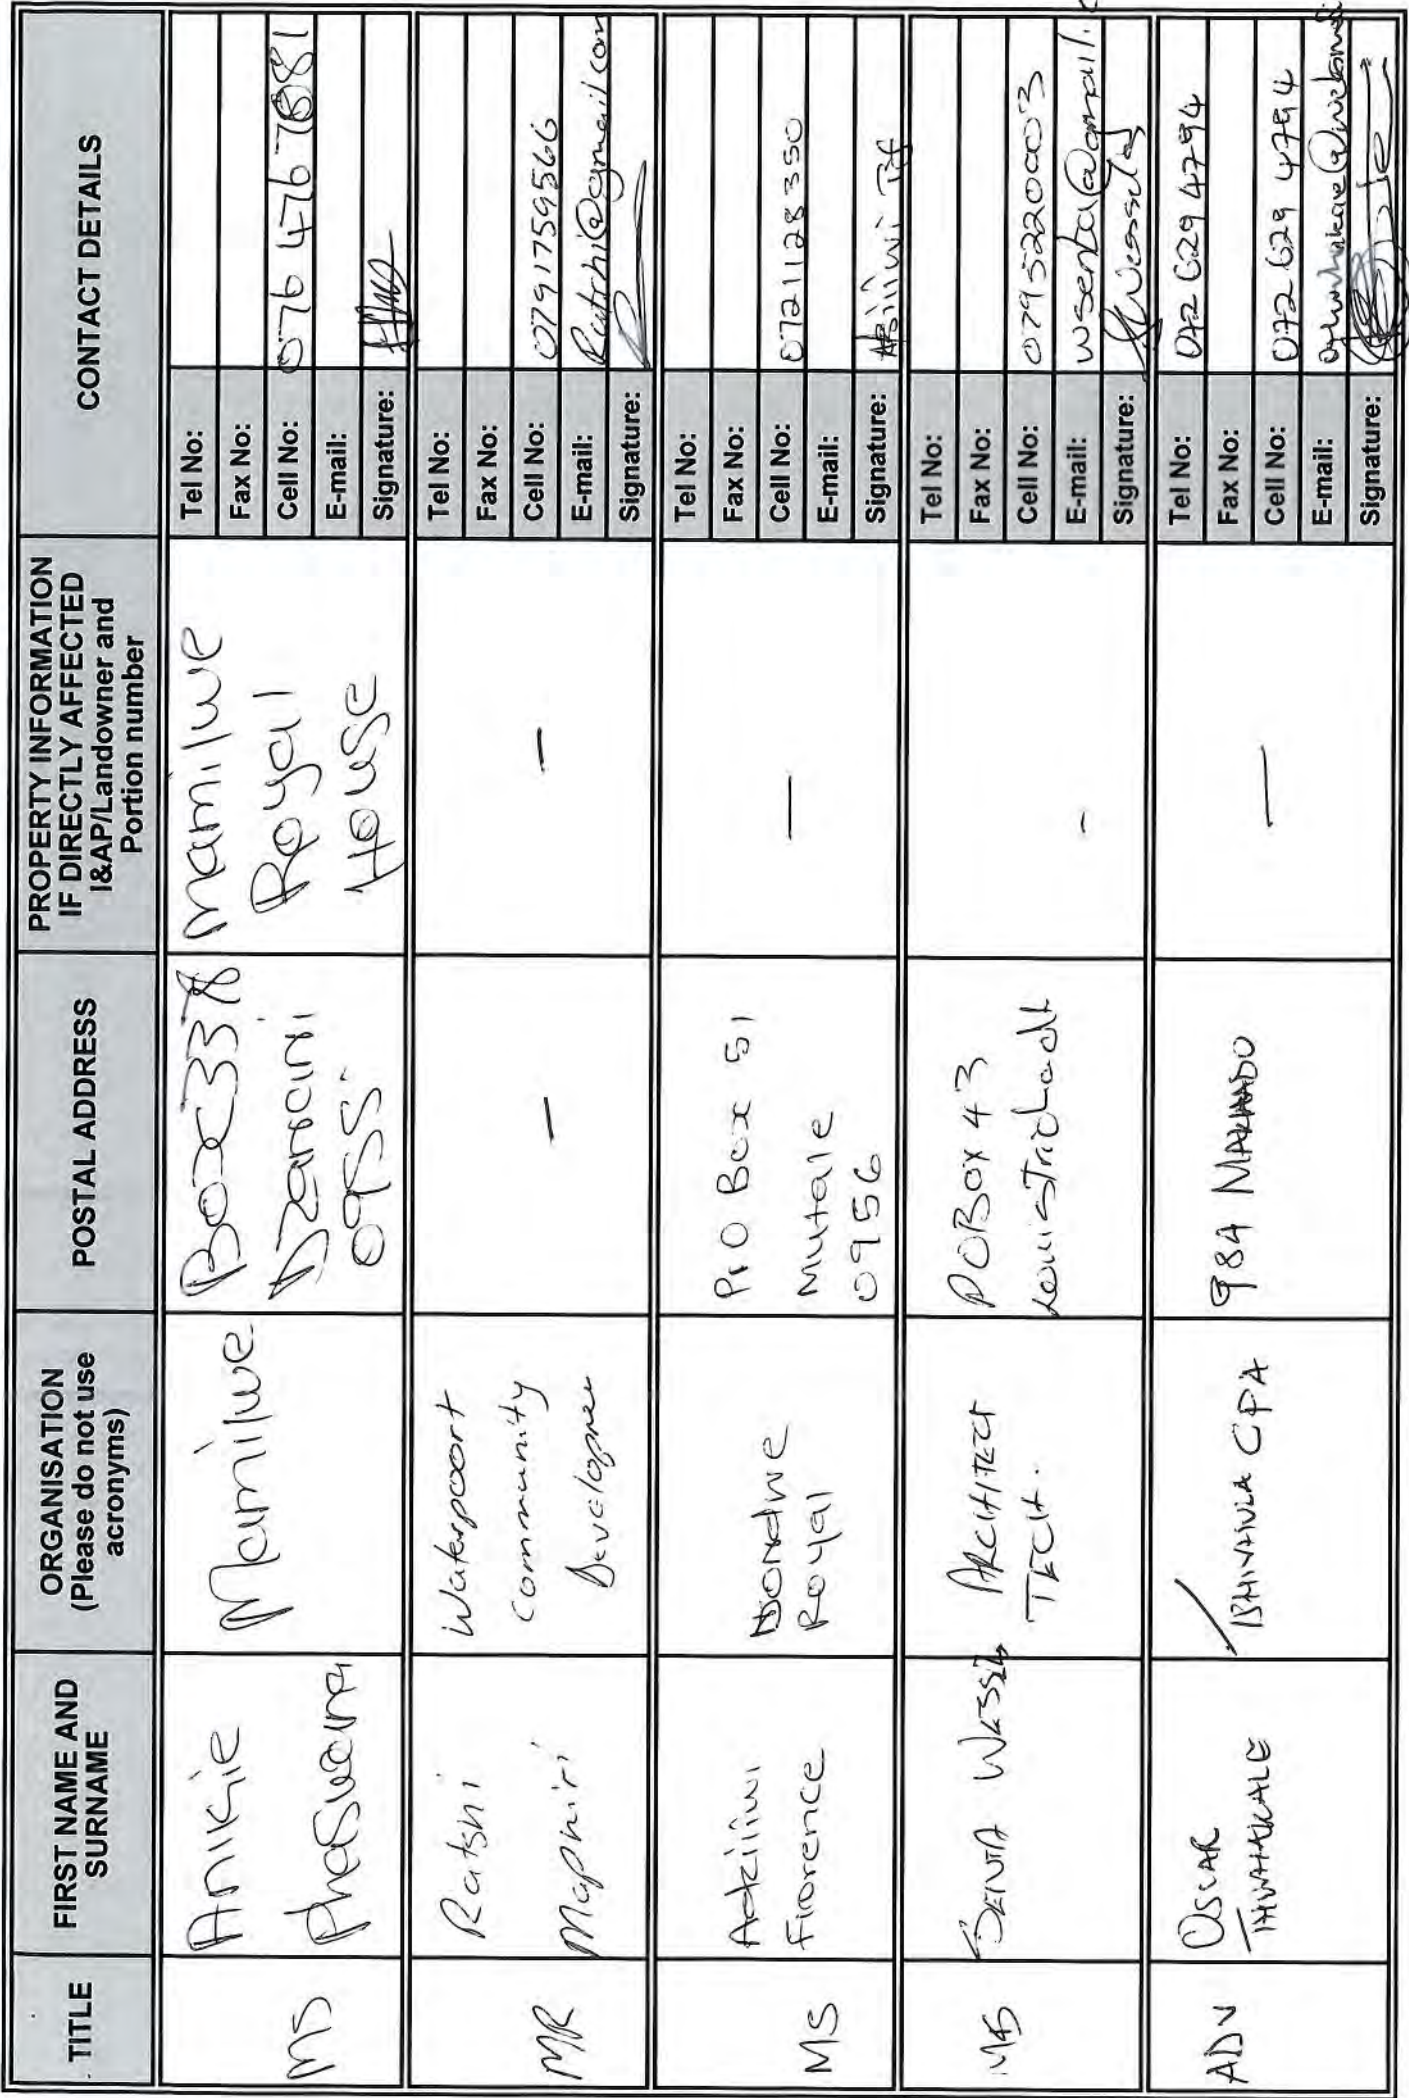 TITLE
FIRST NAME AND
SURNAME
ORGANISATION
(Please do not use
acronyms)
POSTAL ADDRESS
PROPERTY INFORMATION
IF DIRECTLY AFFECTED
I&AP/Landowner and
Portion number
CONTACT DETAILS
MS
Annikie
Phaswana
Mamilwe
Box 338
Dzanani
0955
Mamilwe
Royal
House
Tel No:
Fax No:
Cell No: 076 476 7881
E-mail:
Signature:
MR
Ratshi
Maphiri
Waterpoort
Community
Developmen
—
—
Tel No:
Fax No:
Cell No: 0791759566
E-mail: @gmail.com
Signature:
MS
Florence
Royal
P.O Box 51
Mutale
0956
—
Tel No:
Fax No:
Cell No: 0721128350
E-mail:
Signature:
Wessels
ARCHITECT
TECH.
PO Box 43
Louis Trichadt
-
Tel No:
Fax No:
Cell No: 0795220003
E-mail: wsenta@gmail.c
Signature: Wessels
ADV
OSCAR
THWAKALE
CPA
984 MAKHADO
—
Tel No: 072 629 4794
Fax No:
Cell No: 072 629 4794
E-mail:
Signature: